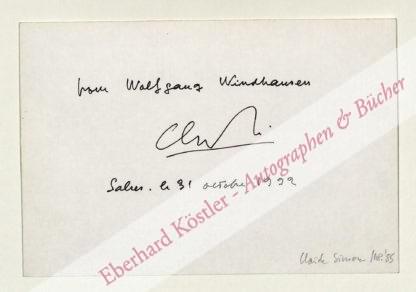 pour Wolfgang Windhausen
Salses. le 31 octobre 1992
Claude Simon
Eberhard Köstler - Autographen & Bücher